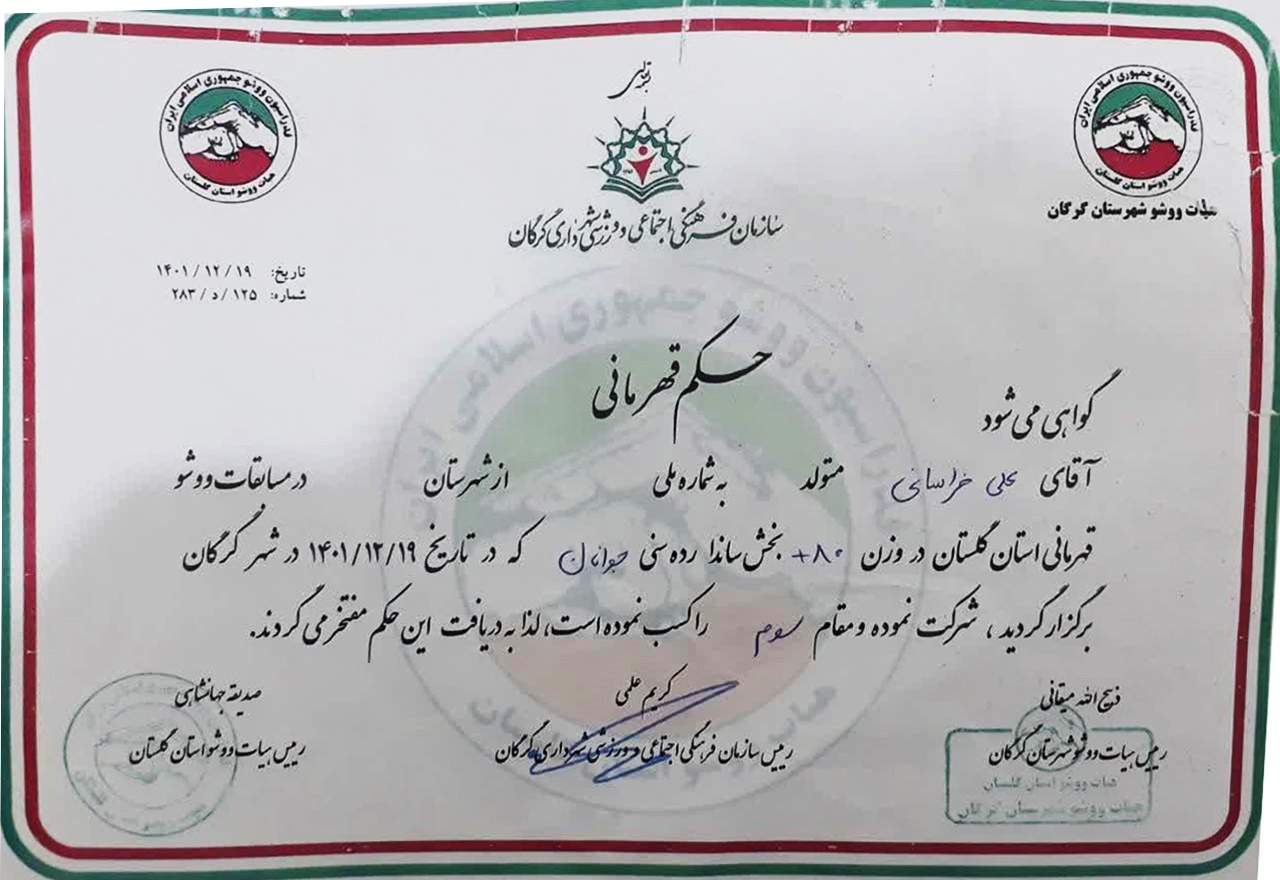 بسمه تعالی
فدراسیون ووشو جمهوری اسلامی ایران
هیات ووشو استان گلستان
هیات ووشو شهرستان گرگان
سازمان فرهنگی اجتماعی و ورزشی شهرداری گرگان
فدراسیون ووشو جمهوری اسلامی ایران
هیات ووشو استان گلستان
تاریخ: ۱۴۰۱/۱۲/۱۹
شماره: ۱۲۵ / د / ۲۸۳
حکم قهرمانی
گواهی می شود
آقای علی خراسانی متولد به شماره ملی از شهرستان در مسابقات ووشو
قهرمانی استان گلستان در وزن ۸۰+ بخش ساندا رده سنی جوانان که در تاریخ ۱۴۰۱/۱۲/۱۹ در شهر گرگان
برگزار گردید ، شرکت نموده و مقام سوم را کسب نموده است، لذا به دریافت این حکم مفتخر می گردند.
ذبیح الله میقانی
رییس هیات ووشو شهرستان گرگان
هیات ووشو استان گلستان
هیات ووشو شهرستان گرگان
کریم علمی
رییس سازمان فرهنگی اجتماعی و ورزشی شهرداری گرگان
صدیقه جهانشاهی
رییس هیات ووشو استان گلستان